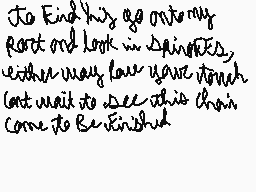 to Find this go onto my
Post and look in spinoffs,
either way love your touch
Cant wait to see this chain
come to Be Finished